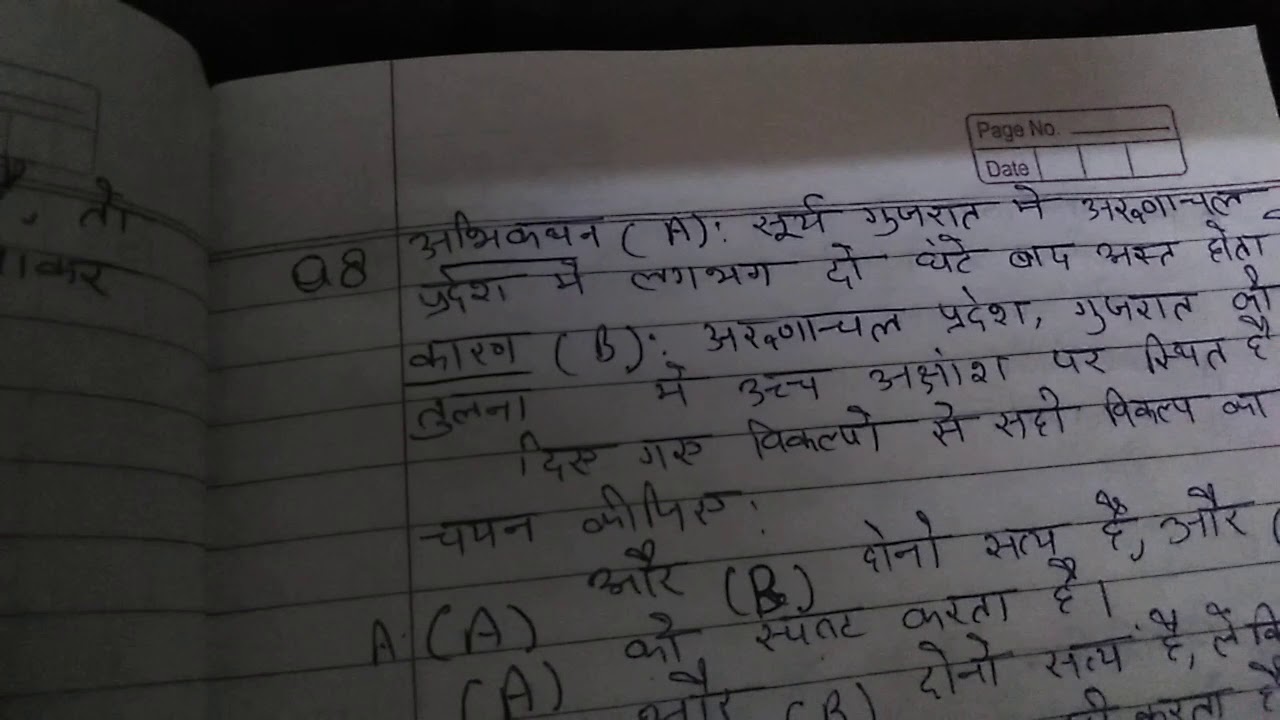 तो
कर
Page No.
Date
Q8 अभिकथन (A): सूर्य गुजरात मे अरूणाचल
प्रदेश में लगभग दो घंटे बाद अस्त होता
कारण (B): अरूणाचल प्रदेश, गुजरात की
तुलना में उच्च अक्षांश पर स्थित है
दिए गए विकल्पो से सही विकल्प का
चयन कीजिए:
A. (A) और (B) दोनो सत्य है, और (
को स्पष्ट करता है।
(A) और (B) दोनो सत्य है, लेकि
करता है